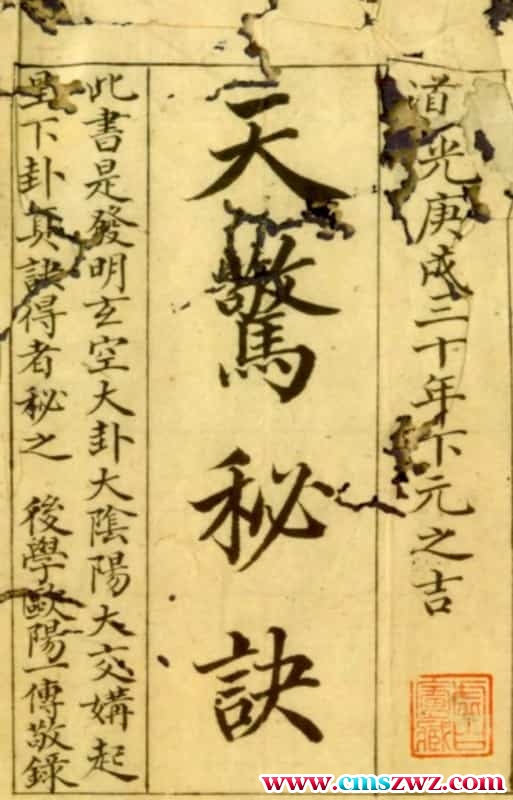 道光庚戌三十年下元之吉
天驚秘訣
此書是發明玄空大卦大陰陽大交媾起
星下卦真訣得者秘之 後學歐陽一傳敬錄
虛白廬藏
www.cmszwz.com